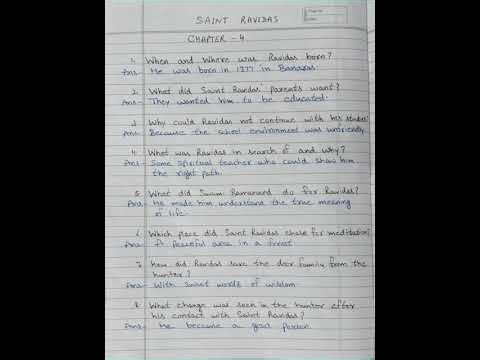 SAINT RAVIDAS
CHAPTER - 4
1. When and Where was Ravidas born?
Ans- He was born in 1377 in Banaras.
2. What did Saint Ravidas' parents want?
Ans- They wanted him to be educated.
3. Why could Ravidas not continue with his studies?
Ans- Because the school environment was unfriendly.
4. What was Ravidas in search of and why?
Ans- Some spiritual teacher who could show him
the right path.
5. What did Swami Ramanand do for Ravidas?
Ans- He made him understand the true meaning
of life.
6. Which place did Saint Ravidas chose for meditation?
Ans- A Peaceful area in a forest.
7. How did Ravidas save the deer family from the
hunter?
Ans- With sweet words of wisdom.
8. What change was seen in the hunter after
his contact with Saint Ravidas?
Ans- He became a good person.